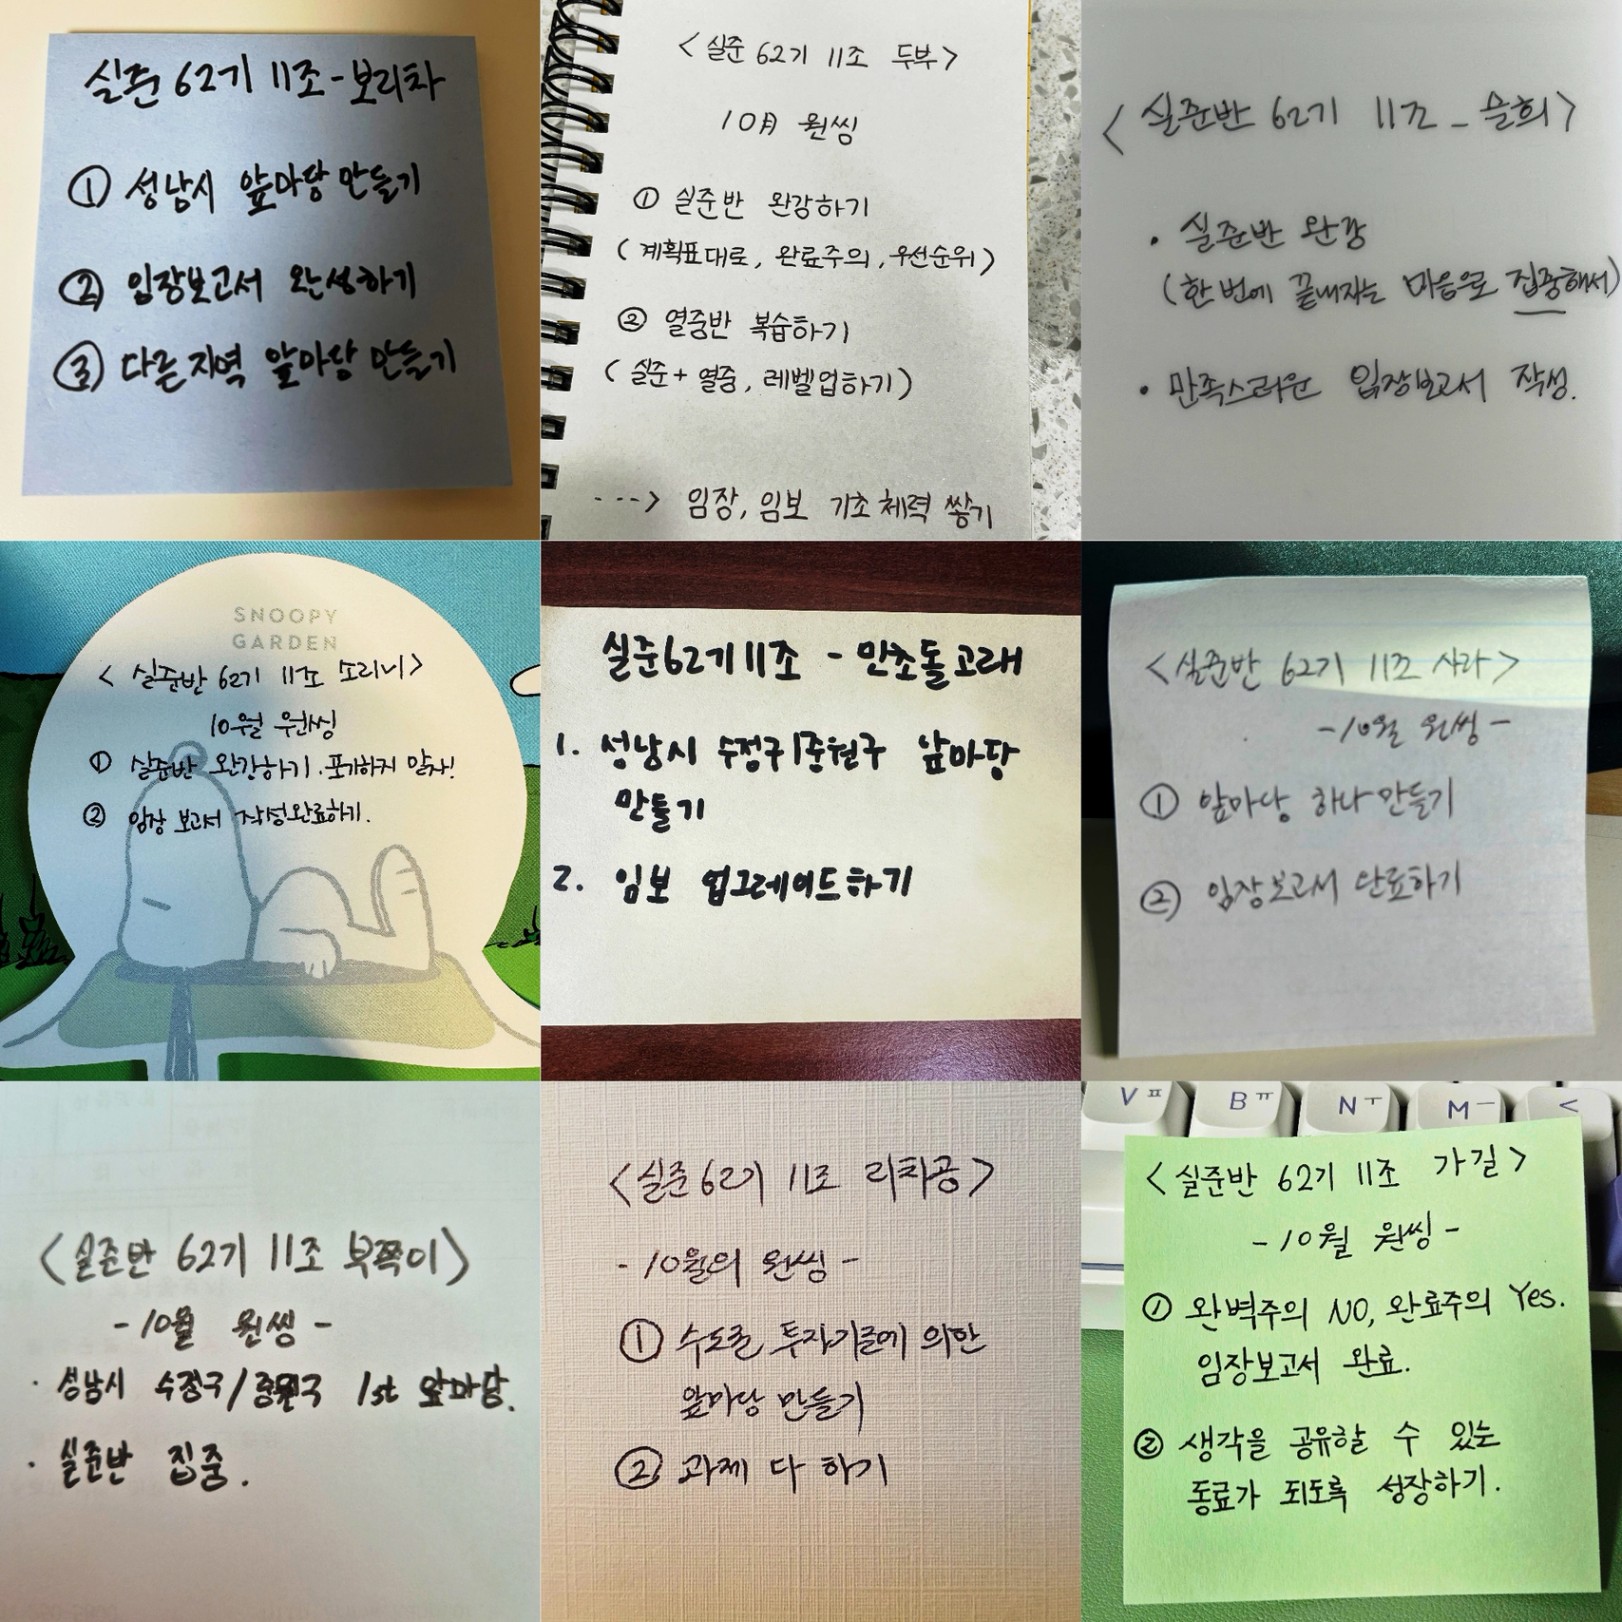 실준 62기 11조 - 보리차
① 성남시 앞마당 만들기
② 임장보고서 완성하기
③ 다른지역 앞마당 만들기
< 실준 62기 11조 두부 >
10月 원씽
① 실준반 완강하기
( 계획표대로, 완료주의, 우선순위 )
② 열중반 복습하기
( 실준 + 열중, 레벨업하기 )
---> 임장, 임보 기초체력 쌓기
< 실준반 62기 11조 _ 슬희 >
• 실준반 완강
( 한 번에 끝내자는 마음으로 집중해서 )
• 만족스러운 임장보고서 작성.
SNOOPY
GARDEN
< 실준반 62기 11조 소리니 >
10월 원씽
① 실준반 완강하기. 포기하지 말자!
② 임장보고서 작성완료하기.
실준62기 11조 - 만초돌고래
1. 성남시 수정구/중원구 앞마당
만들기
2. 임보 업그레이드하기
< 실준반 62기 11조 사라 >
- 10월 원씽 -
① 앞마당 하나 만들기
② 임장보고서 완료하기
< 실준반 62기 11조 부쪽이 >
- 10월 원씽 -
· 성남시 수정구/중원구 1st 앞마당.
· 실준반 집중.
< 실준 62기 11조 리치공 >
- 10월의 원씽 -
① 수도권 투자기준에 의한
앞마당 만들기
② 과제 다 하기
V ㅍ B ㅠ N ㅜ M ㅡ <
< 실준반 62기 11조 가길 >
- 10월 원씽 -
① 완벽주의 NO, 완료주의 Yes.
임장보고서 완료.
② 생각을 공유할 수 있는
동료가 되도록 성장하기.